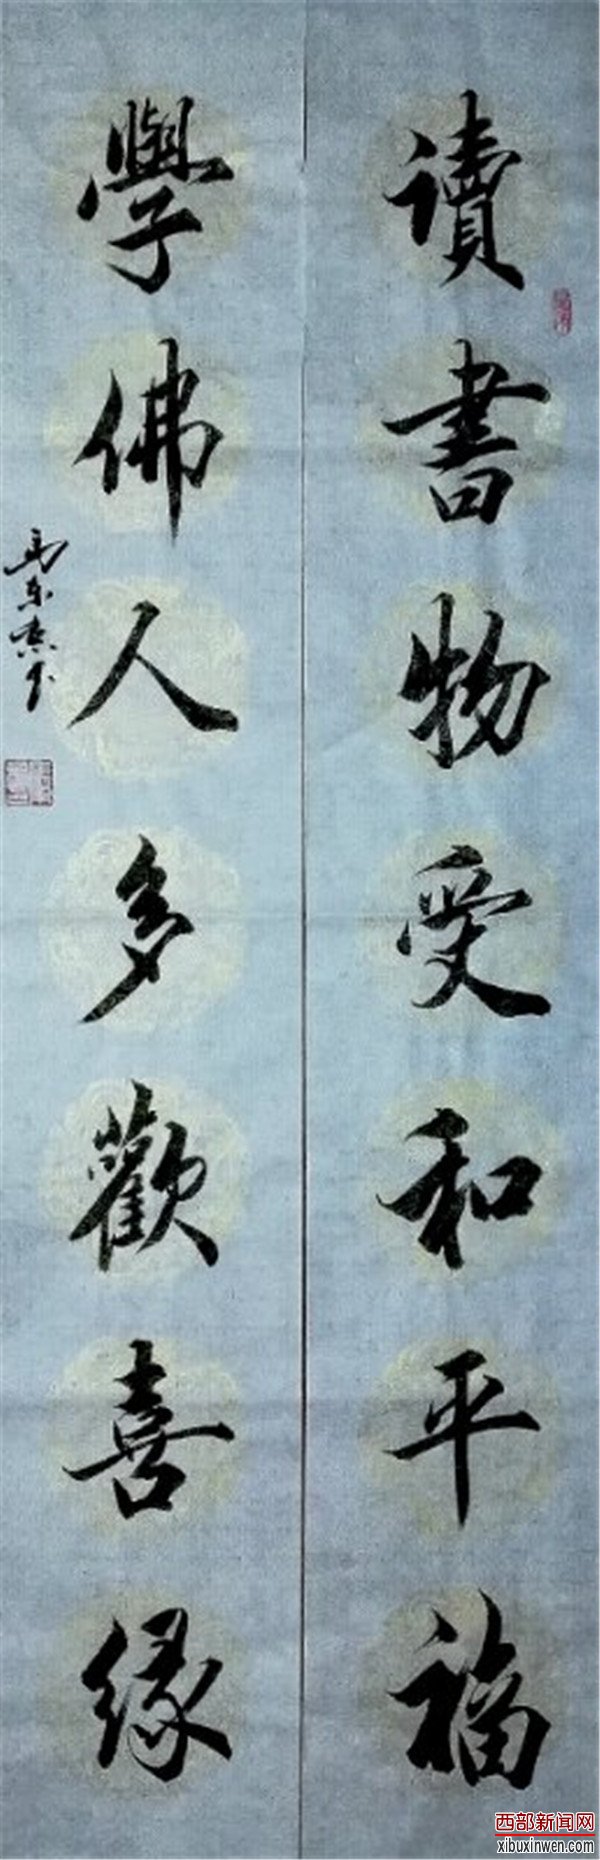 讀書物受和平福
學佛人多歡喜緣
西部新闻网
xibuxinwen.com